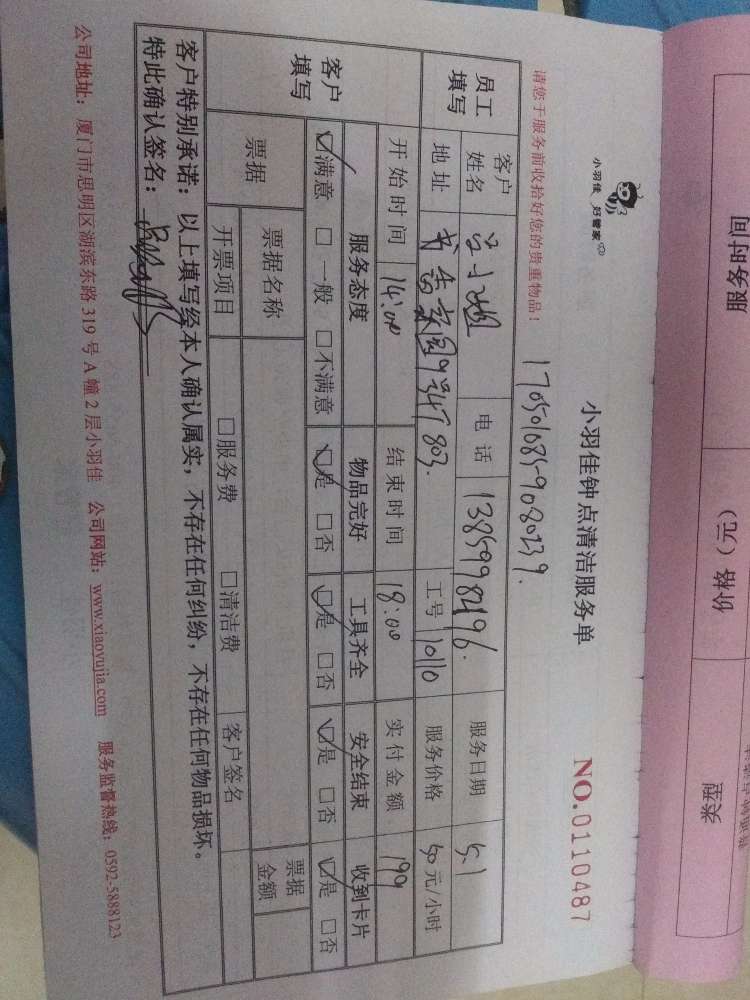 小羽佳 好管家
小羽佳钟点清洁服务单
NO.0110487
请您于服务前收拾好您的贵重物品!
员工填写 客户姓名 电话 服务日期 5.1
地址 工号 10110 服务价格 50元/小时
开始时间 14:00 结束时间 18:00 实付金额 199
客户填写 服务态度 物品完好 工具齐全 安全结束 收到卡片
☑满意 □一般 □不满意 ☑是 □否 ☑是 □否 ☑是 □否 ☑是 □否
票据 票据名称 票据金额
开票项目 □服务费 □清洁费 客户签名
客户特别承诺:以上填写经本人确认属实,不存在任何纠纷,不存在任何物品损坏。
特此确认签名:
公司地址:厦门市思明区湖滨东路 319 号 A 幢 2 层小羽佳 公司网站:www.xiaoyujia.com 服务监督热线:0592-5888123
服务时间
价格(元)
类型